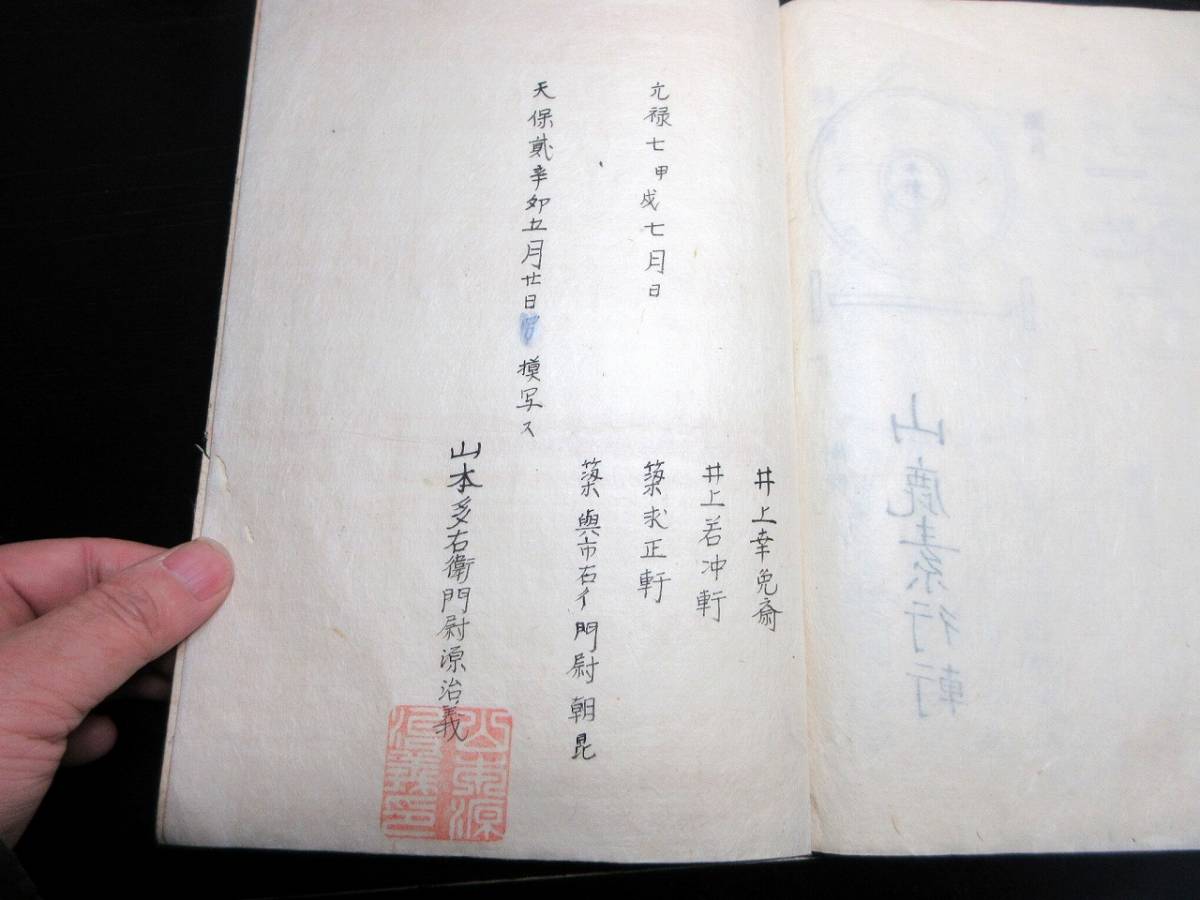 井上幸免斎
井上若冲軒
元禄七甲戌七月日
築求正軒
築與市右ヱ門尉朝昆
天保貳辛卯五月廿日 摸写ス
山本多右衛門尉源治義
山鹿素行軒